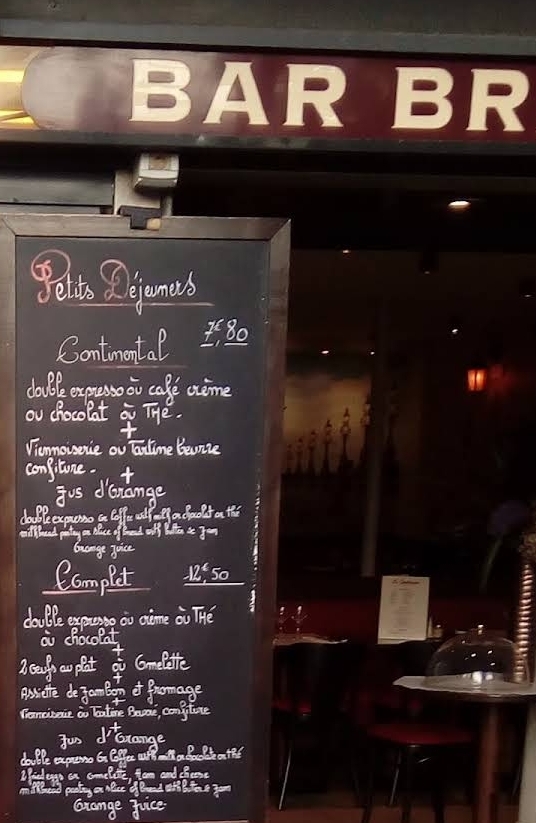 BAR BR
Petits Déjeuners
7€,80
Continental
double expresso où café crème
ou chocolat où Thé.
+
Viennoiserie ou Tartine Beurre
confiture.
+
Jus d'Orange
double expresso or Coffee with milk or chocolat or thé
milkbread pastry or slice of bread with butter & Jam
Orange juice
Complet 12€,50
double expresso où crème où Thé
où chocolat
+
2 Oeufs au plat où Omelette
+
Assiette de Jambon et fromage
+
Viennoiserie où Tartine Beurre, confiture
+
Jus d'Orange
double expresso or Coffee with milk or chocolate or thé
2 fried eggs or omelette, Ham and cheese
milkbread pastry or slice of bread with butter & Jam
Orange Juice